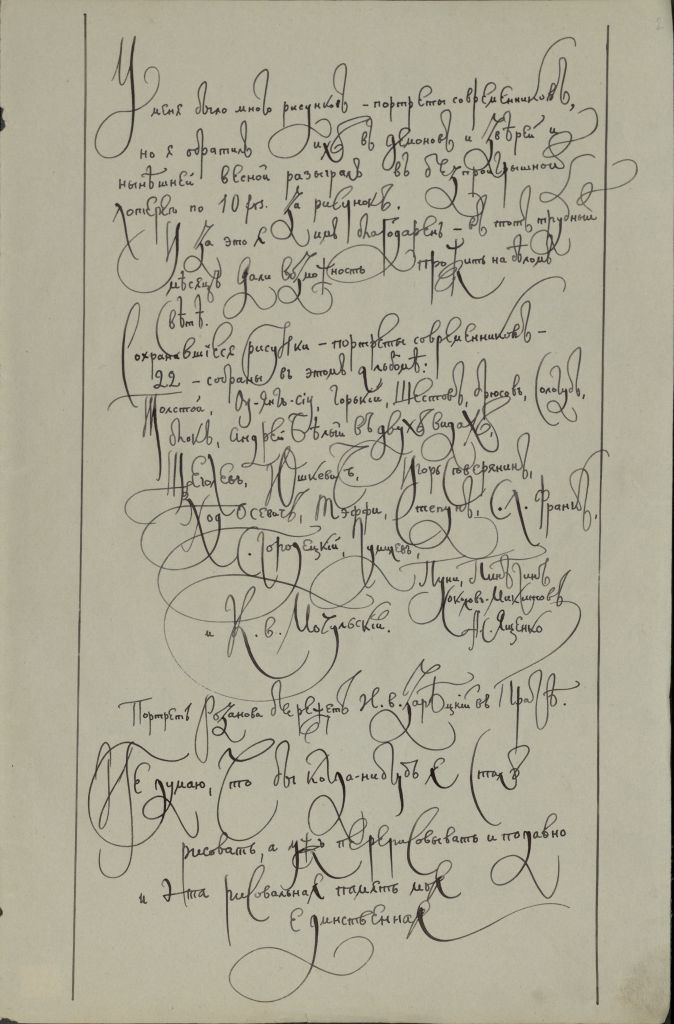 У меня было много рисунков – портреты современниковъ,
но я обратилъ ихъ въ демоновъ и звѣрей и
нынѣшней весной разыгралъ въ безпроигрышной
лотереѣ по 10 frs. за рисунокъ.
И за это я имъ благодаренъ – въ тотъ трудный
мѣсяцъ дали возможность прожить на бѣломъ
свѣтѣ.
Сохранившіеся рисунки – портреты современниковъ –
22 – собраны въ этомъ альбомѣ:
Толстой, Оу-Янъ-Сіу, Горькій, Шестовъ, Брюсовъ, Сологубъ,
Блокъ, Андрей Бѣлый въ двухъ видахъ,
Щеголевъ, Юшкевичъ, Игорь Северянинъ,
Ходасевичъ, Тэффи, Степунъ, С. Л. Франкъ,
С. Городецкій, Лунцевъ,
Пуни, Пинѣгинъ
Соколовъ-Микитовъ
и К. В. Мочульскій. А. С. Ященко
Портретъ Розанова бережетъ Н. В. Зарѣцкій въ Прагѣ.
Не думаю, что бы когда-нибудь я сталъ
рисовать, а ужъ перерисовывать и подавно
и эта рисовальная память моя
единственная